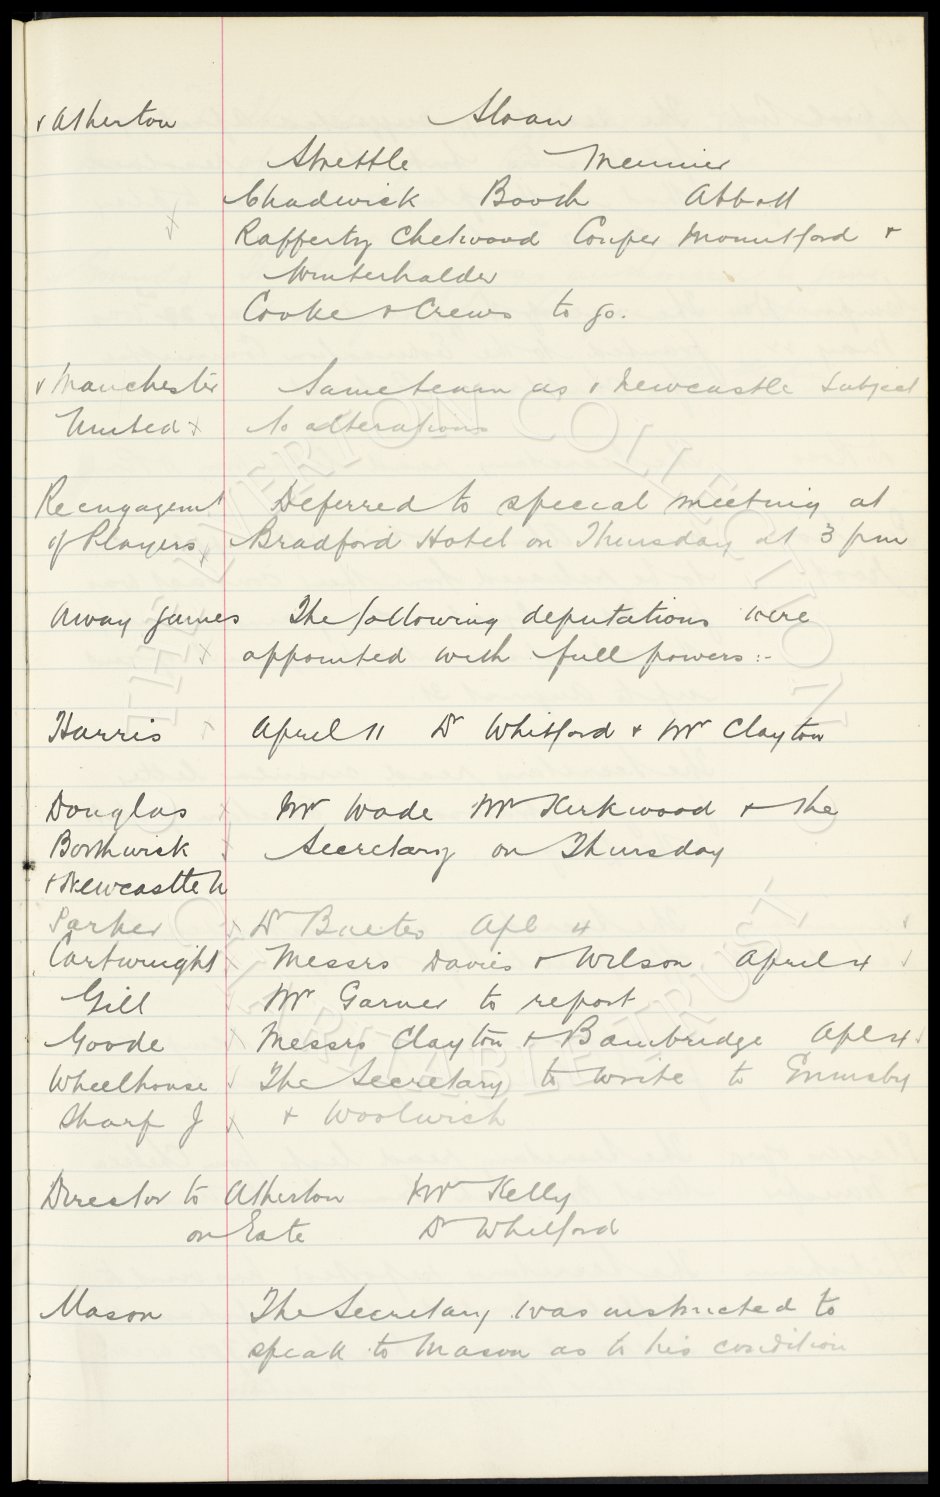 v Atherton Sloan
Strettle Meunier
Chadwick Booth Abbott
Rafferty Chetwood Couper Mountford &
Winterhalder
Cooke & Crews to go.
v Manchester Same team as v Newcastle subject
United to alterations
Reengagemt Deferred to special meeting at
of Players Bradford Hotel on Thursday at 3 pm
Away games The following deputations were
appointed with full powers:-
Harris April 11 Dr Whitford & Mr Clayton
Douglas Mr Wade Mr Kirkwood & the
Borthwick Secretary on Thursday
v Newcastle U
Parker Dr Baxter Apl 4
Cartwright Messrs Davies & Wilson April 4
Gill Mr Garner to report
Goode Messrs Clayton & Bainbridge Apl 4
Wheelhouse The Secretary to write to Grimsby
Sharp J & Woolwich
Director to Atherton Mr Kelly
on Gate Dr Whitford
Mason The Secretary was instructed to
speak to Mason as to his condition
THE EVERTON COLLECTION
CHARITABLE TRUST